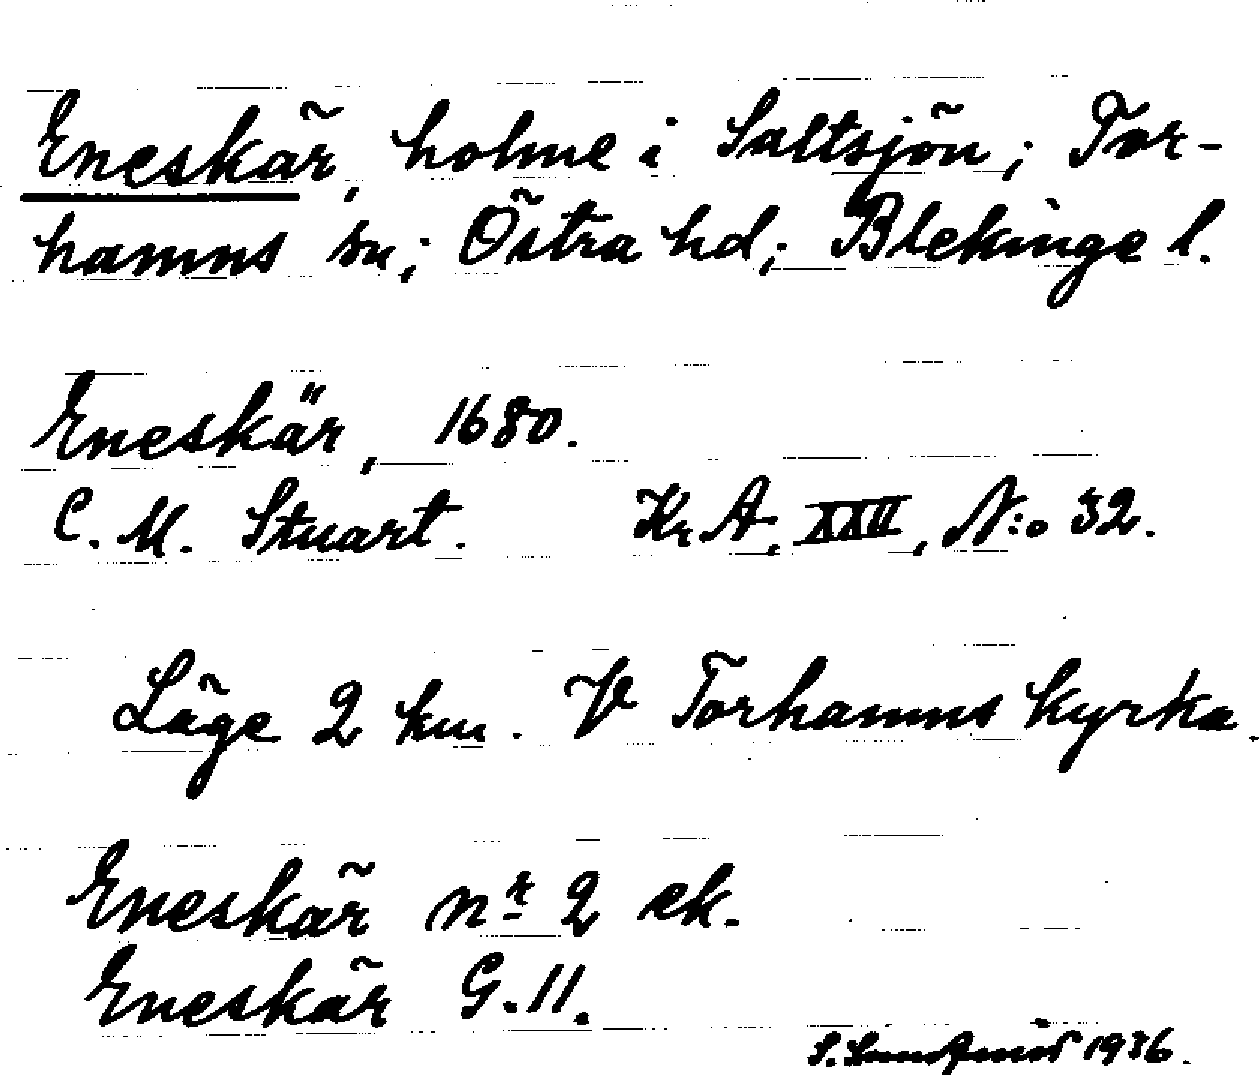 Eneskär, holme i Saltsjön; Tor-
hamns sn; Östra hd; Blekinge l.
Eneskär, 1680.
C. M. Stuart. Kr. A. XXII, N:o 32.
Läge 2 km. V Torhamns kyrka.
Eneskär nr 2 ek.
Eneskär G. 11.
S. 1936.